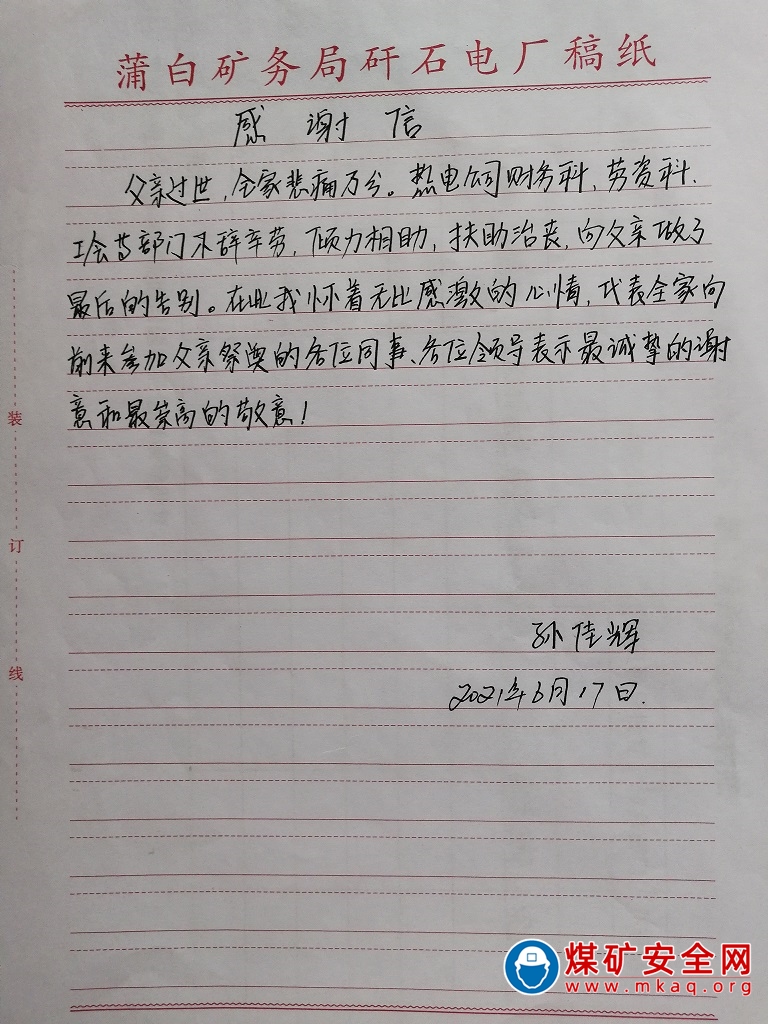 蒲白矿务局矸石电厂稿纸
感谢信
父亲过世，全家悲痛万分。热电公司财务科、劳资科、
工会等部门不辞辛劳，倾力相助，扶助治丧，向父亲做了
最后的告别。在此我怀着无比感激的心情，代表全家向
前来参加父亲祭奠的各位同事、各位领导表示最诚挚的谢
意和最崇高的敬意！
孙佳辉
2021年6月17日.
装
订
线
煤矿安全网
www.mkaq.org